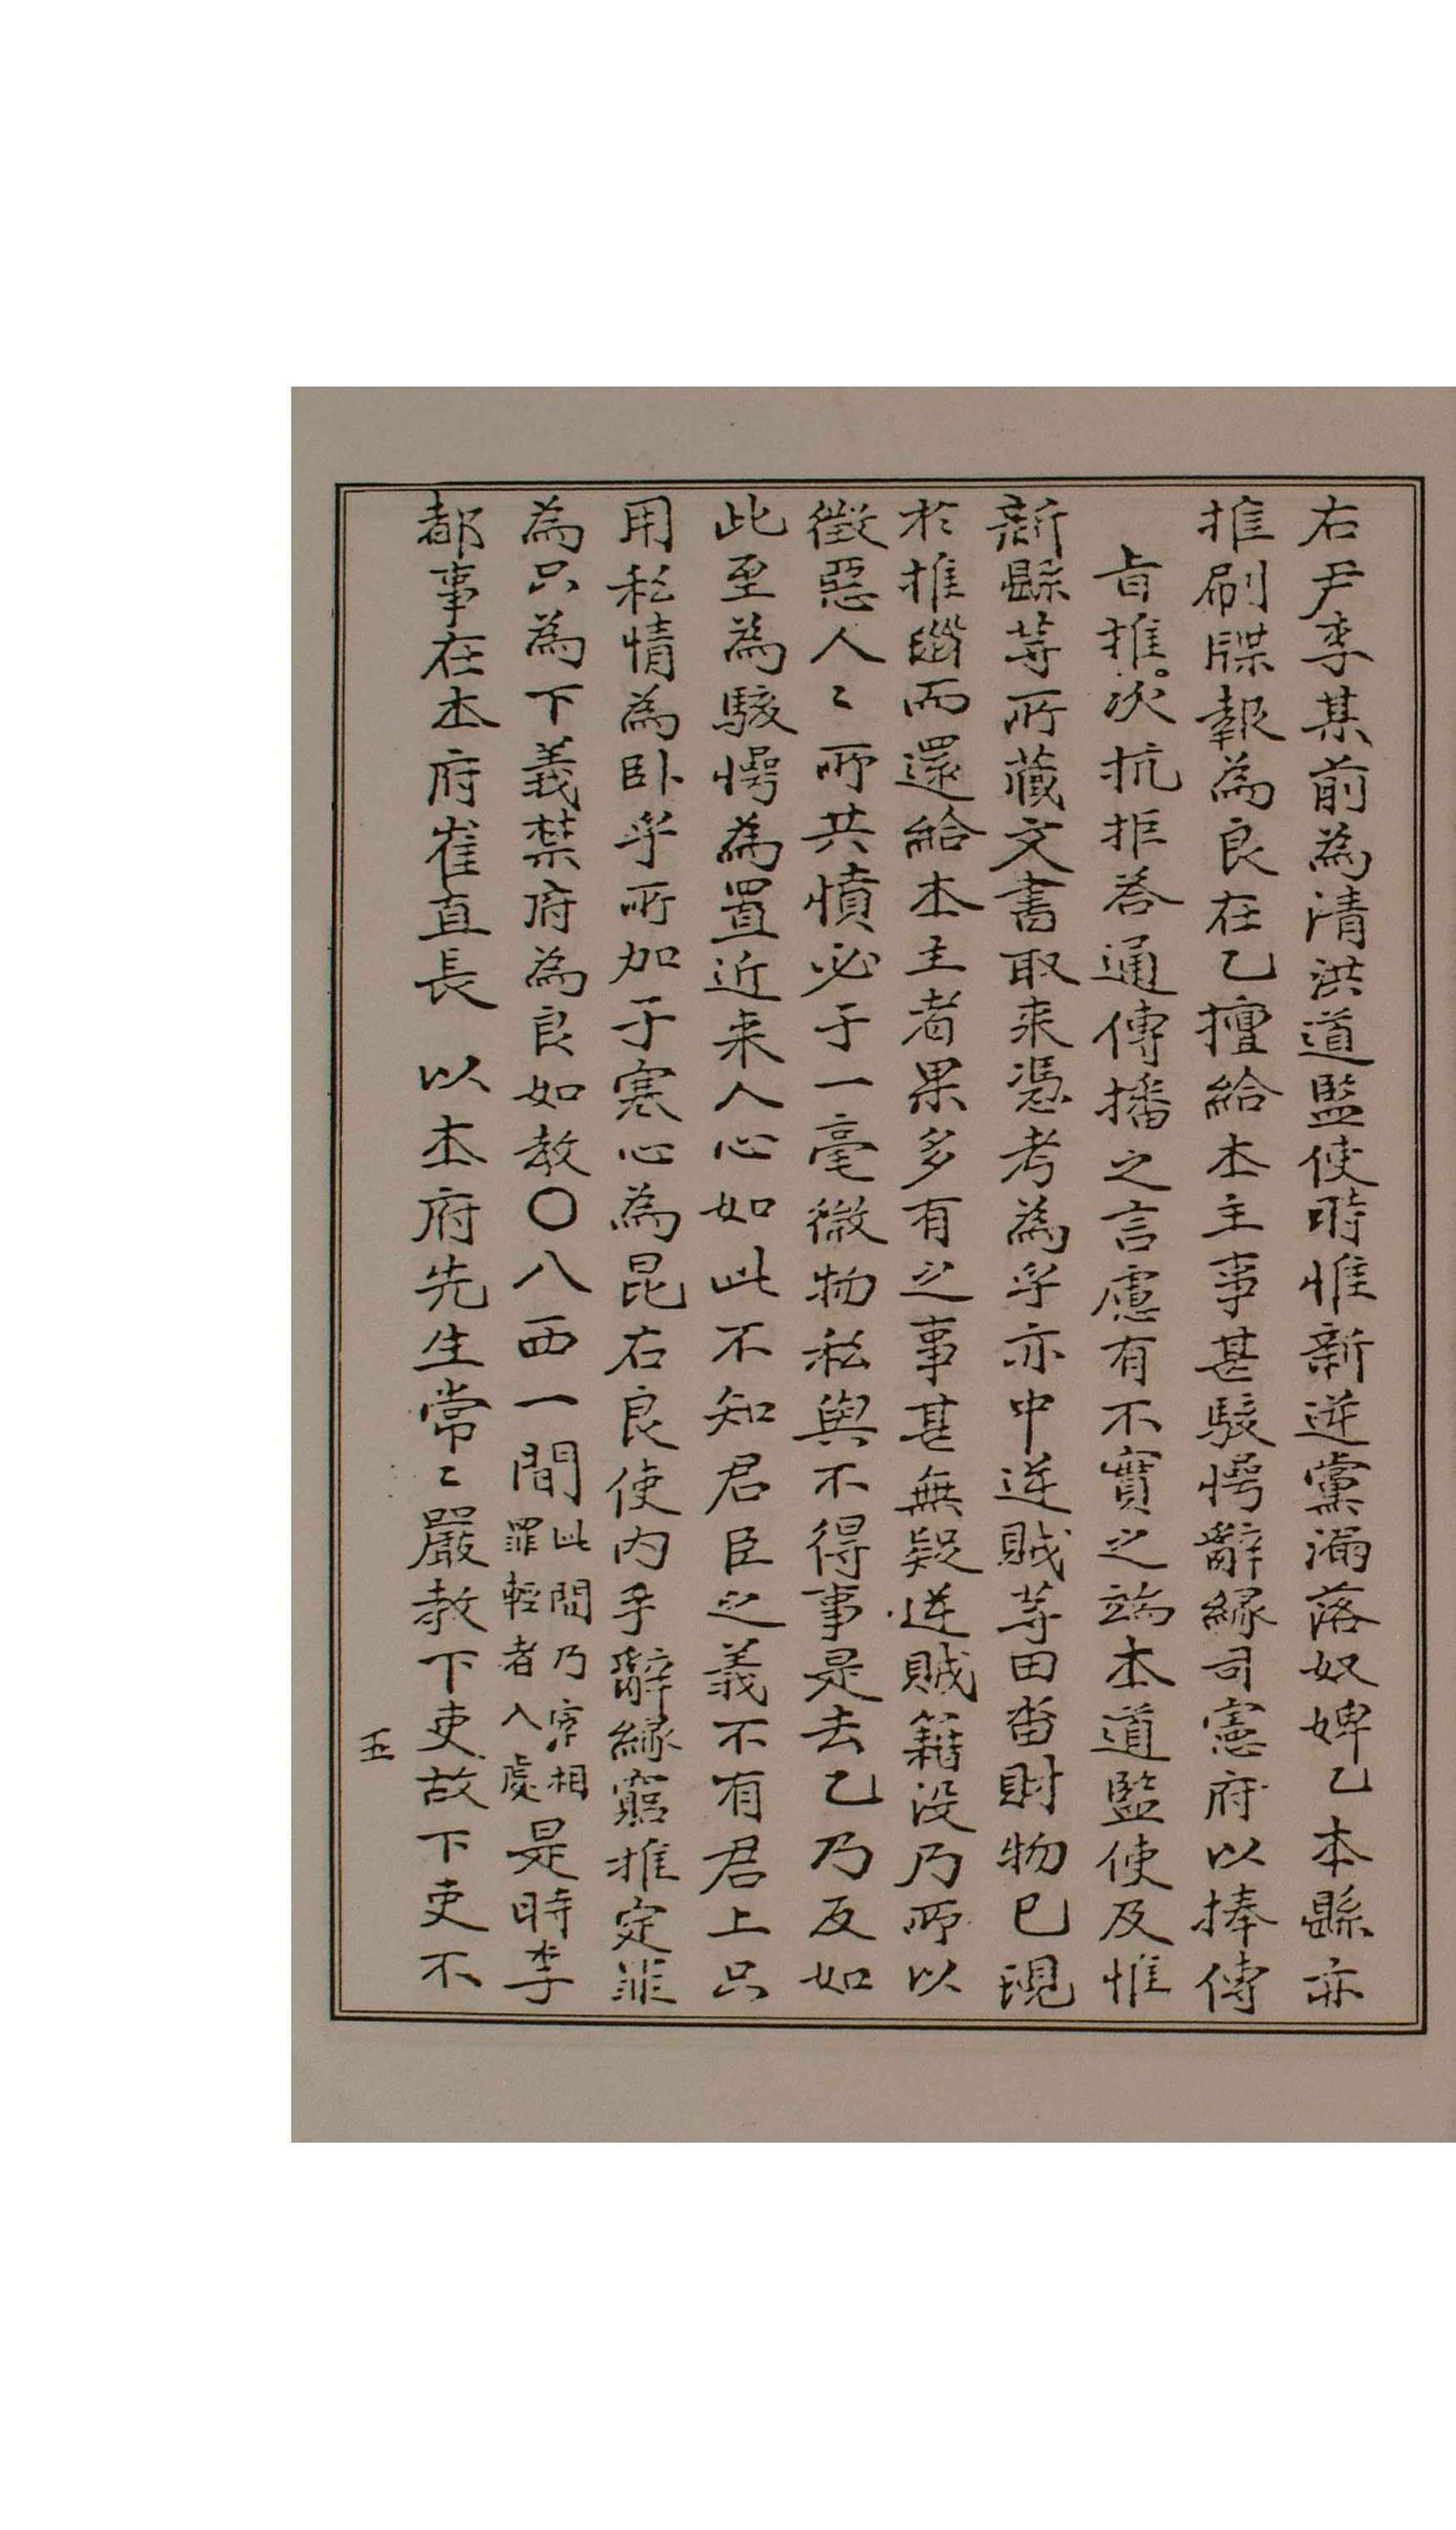 右尹李某前為淸洪道監使時惟新逆黨漏落奴婢乙本縣亦
推刷牒報為良在乙擅給本主事甚駭愕辭緣司憲府以捧傳
旨推次抗拒答通傳播之言慮有不實之端本道監使及惟
新縣等所藏文書取来憑考為乎亦中逆賊等田畓財物已現
於推鞫而還給本主者果多有之事甚無疑逆賊籍没乃所以
徵惡人〻所共憤必于一毫微物私與不得事是去乙乃反如
此至為駭愕為置近来人心如此不知君臣之義不有君上只
用私情為卧乎所加于寒心為昆右良使内乎辭緣窮推定罪
為只為下義禁府為良如教〇八西一間此間乃房相
罪輕者入處是時李
都事在本府崔直長 以本府先生常〻嚴教下吏故下吏不
五